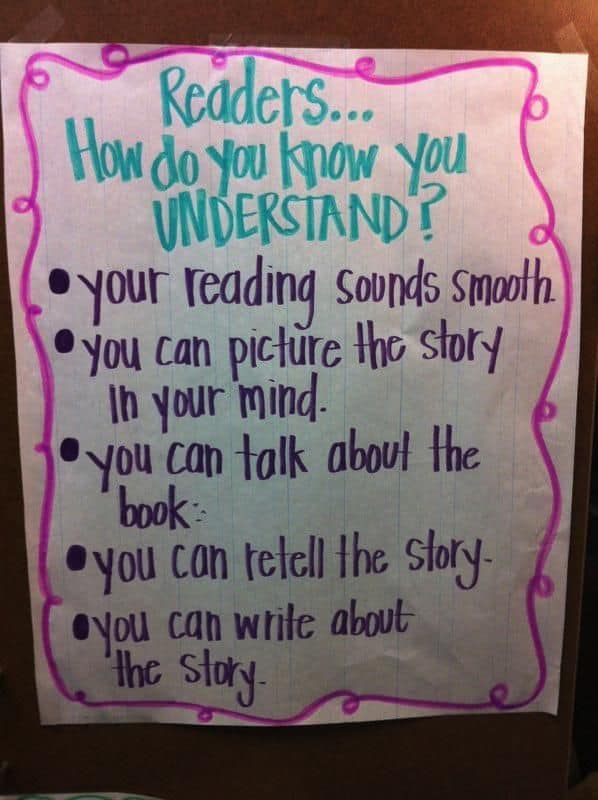 Readers...
How do you know you
UNDERSTAND?
• your reading sounds smooth.
• you can picture the story
in your mind.
• you can talk about the
book.
• you can retell the story.
• you can write about
the story.